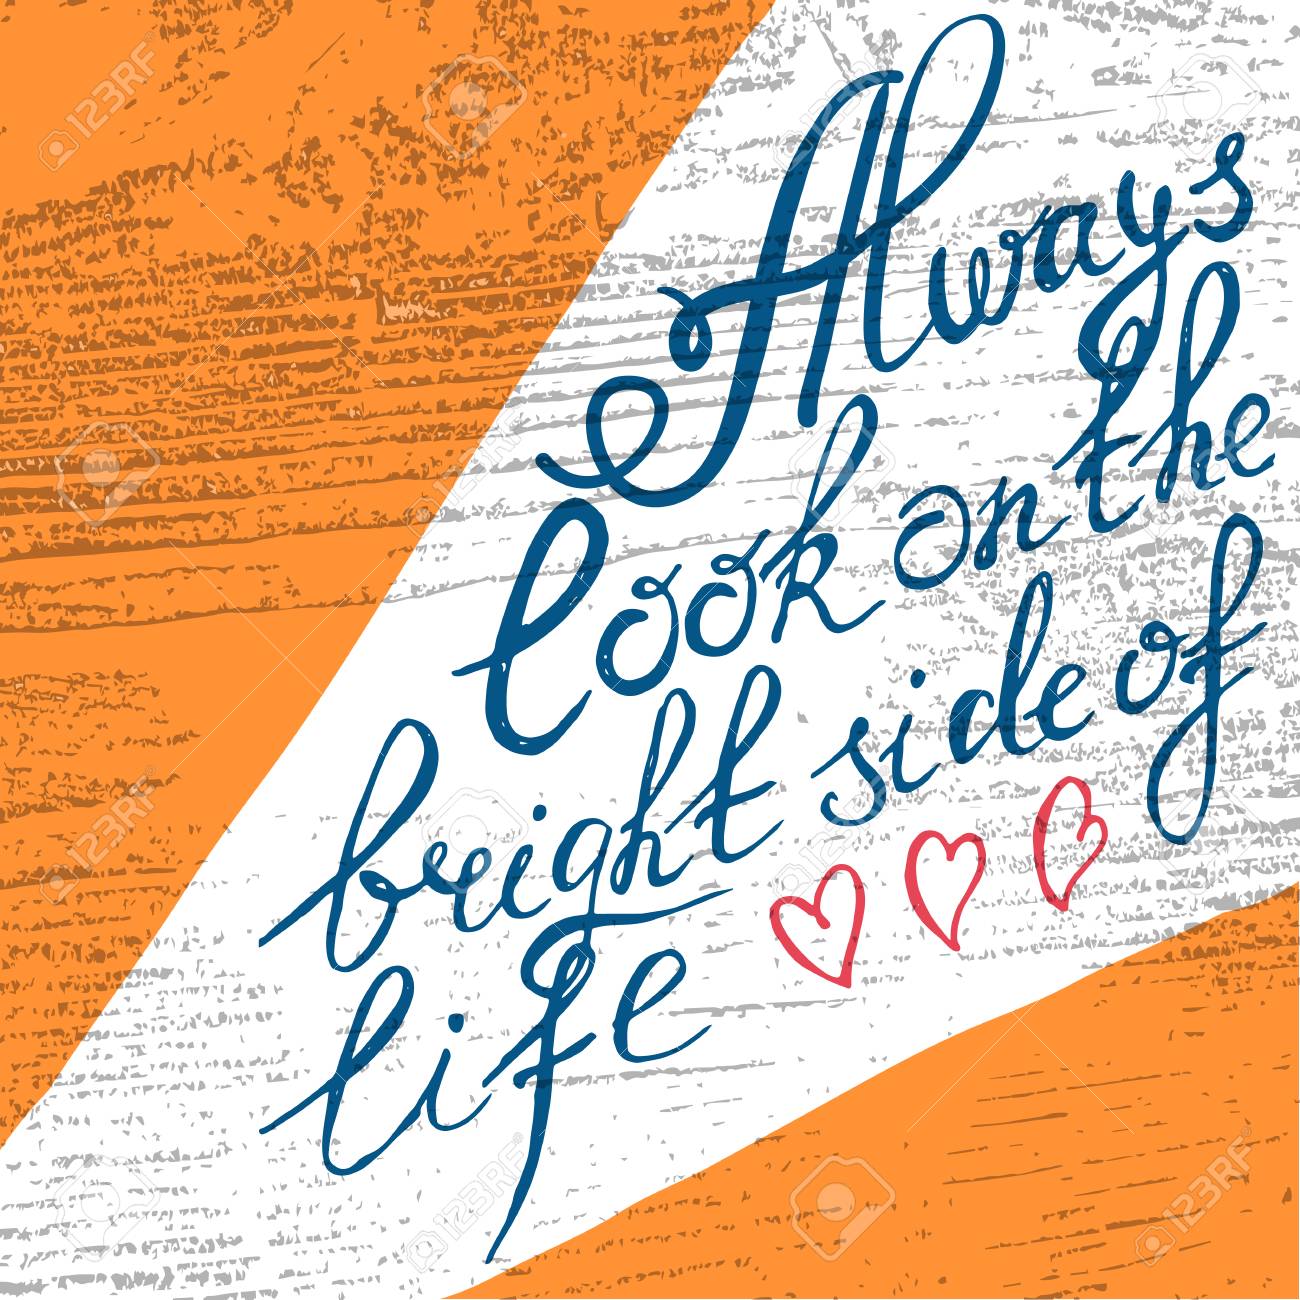 Always
look on the
bright side of
life
123RF